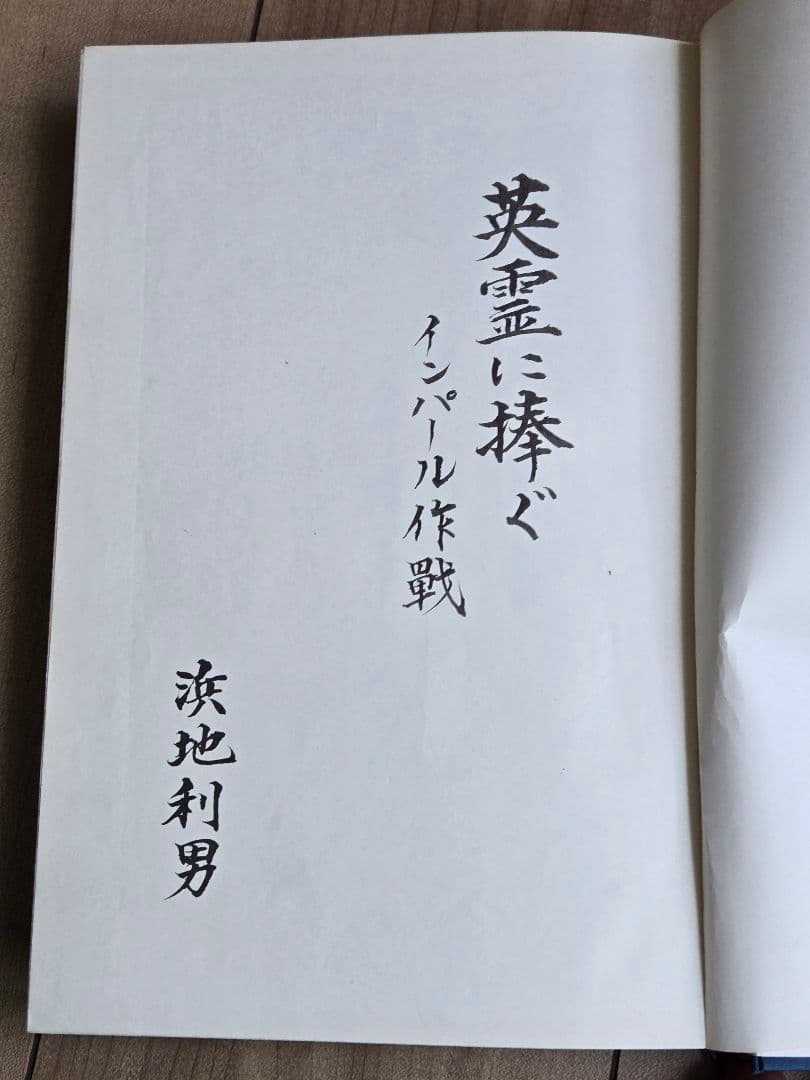 英霊に捧ぐ
インパール作戰
浜地利男